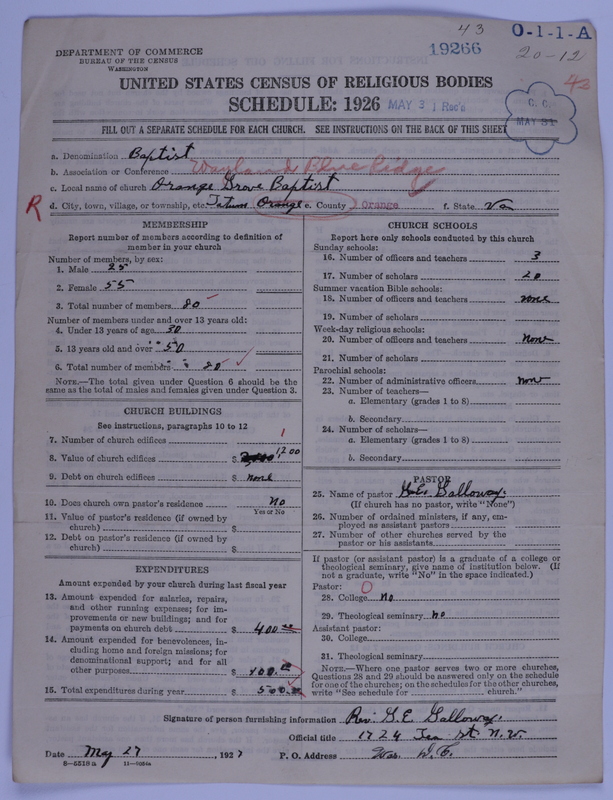 43
O-1-1-A
19266
20-12
DEPARTMENT OF COMMERCE
BUREAU OF THE CENSUS
WASHINGTON
UNITED STATES CENSUS OF RELIGIOUS BODIES
SCHEDULE: 1926 MAY 31 Rec'd
C. C.
MAY 31
43
FILL OUT A SEPARATE SCHEDULE FOR EACH CHURCH. SEE INSTRUCTIONS ON THE BACK OF THIS SHEET
a. Denomination Baptist
b. Association or Conference Wayland Blue Ridge
c. Local name of church Orange Grove Baptist
R d. City, town, village, or township, etc. Tatum Orange e. County Orange f. State Va
MEMBERSHIP
Report number of members according to definition of
member in your church
Number of members, by sex:
1. Male 25
2. Female 55
3. Total number of members 80
Number of members under and over 13 years old:
4. Under 13 years of age 30
5. 13 years old and over 50
6. Total number of members 80
NOTE.—The total given under Question 6 should be the
same as the total of males and females given under Question 3.
CHURCH BUILDINGS
See instructions, paragraphs 10 to 12
7. Number of church edifices 1
8. Value of church edifices $ 1200
9. Debt on church edifices $ none
10. Does church own pastor's residence No
Yes or No
11. Value of pastor's residence (if owned by
church) $
12. Debt on pastor's residence (if owned by
church) $
EXPENDITURES
Amount expended by your church during last fiscal year
13. Amount expended for salaries, repairs,
and other running expenses; for im-
provements or new buildings; and for
payments on church debt $ 400.00
14. Amount expended for benevolences, in-
cluding home and foreign missions; for
denominational support; and for all
other purposes $ 100.00
15. Total expenditures during year $ 500.00
CHURCH SCHOOLS
Report here only schools conducted by this church
Sunday schools:
16. Number of officers and teachers 3
17. Number of scholars 20
Summer vacation Bible schools:
18. Number of officers and teachers none
19. Number of scholars
Week-day religious schools:
20. Number of officers and teachers None
21. Number of scholars
Parochial schools:
22. Number of administrative officers none
23. Number of teachers—
a. Elementary (grades 1 to 8)
b. Secondary
24. Number of scholars—
a. Elementary (grades 1 to 8)
b. Secondary
PASTOR
25. Name of pastor G.E. Galloway.
(If church has no pastor, write "None")
26. Number of ordained ministers, if any, em-
ployed as assistant pastors
27. Number of other churches served by the
pastor or his assistants
If pastor (or assistant pastor) is a graduate of a college or
theological seminary, give name of institution below. (If
not a graduate, write "No" in the space indicated.)
Pastor: 0
28. College No
29. Theological seminary no
Assistant pastor:
30. College
31. Theological seminary
NOTE.—Where one pastor serves two or more churches,
Questions 28 and 29 should be answered only on the schedule
for one of the churches; on the schedules for the other churches,
write "See schedule for church."
Signature of person furnishing information Rev. G. E. Galloway.
Official title 1724 St. N.W.
Date May 27, 1927 P. O. Address Was. D.C.
8-5518 a 11-8054a